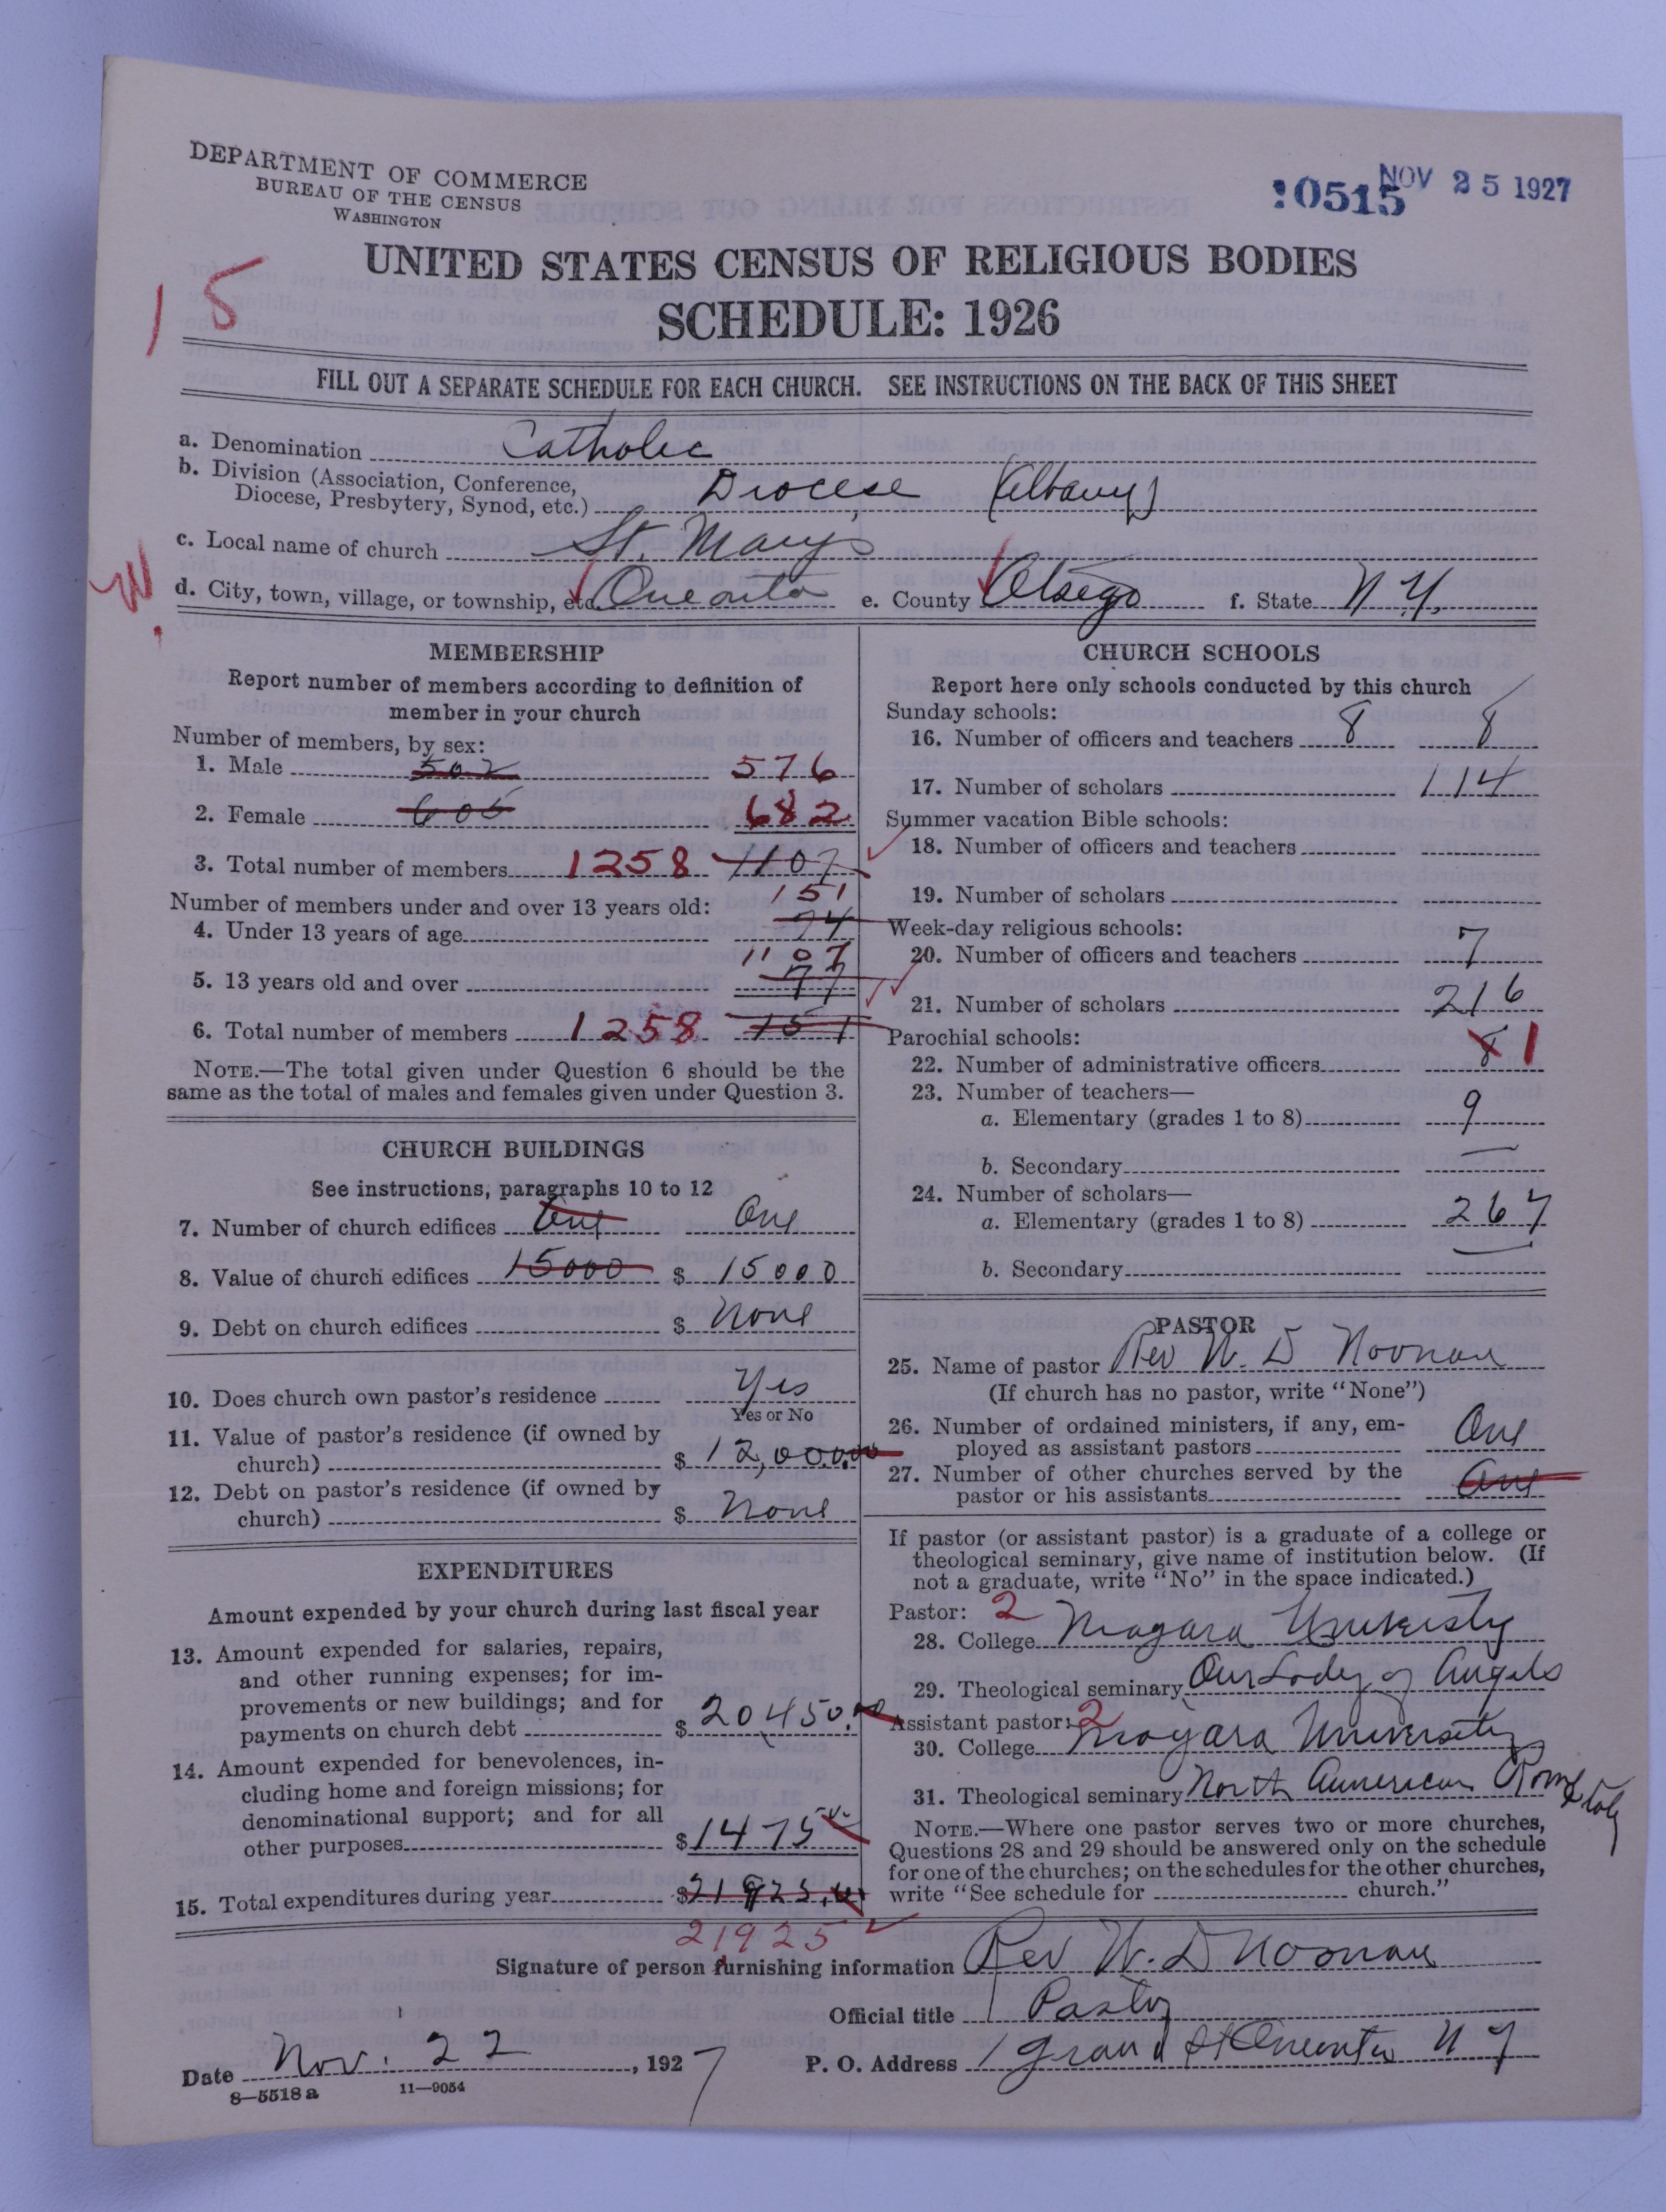 DEPARTMENT OF COMMERCE
BUREAU OF THE CENSUS
WASHINGTON
10515 NOV 25 1927
UNITED STATES CENSUS OF RELIGIOUS BODIES
SCHEDULE: 1926
15
FILL OUT A SEPARATE SCHEDULE FOR EACH CHURCH. SEE INSTRUCTIONS ON THE BACK OF THIS SHEET
a. Denomination Catholic
b. Division (Association, Conference,
Diocese, Presbytery, Synod, etc.) Diocese (Albany)
c. Local name of church St. Mary's
W.
d. City, town, village, or township, etc. Oneonta e. County Otsego f. State N Y.
MEMBERSHIP
Report number of members according to definition of
member in your church
Number of members, by sex:
1. Male 502 576
2. Female 605 682
3. Total number of members 1258 1107
Number of members under and over 13 years old: 151
4. Under 13 years of age 74
1107
5. 13 years old and over 77
6. Total number of members 1258 151
NOTE.—The total given under Question 6 should be the
same as the total of males and females given under Question 3.
CHURCH BUILDINGS
See instructions, paragraphs 10 to 12
7. Number of church edifices One One
8. Value of church edifices 15000 $ 15000
9. Debt on church edifices $ None
10. Does church own pastor's residence Yes
Yes or No
11. Value of pastor's residence (if owned by
church) $ 12,000.00
12. Debt on pastor's residence (if owned by
church) $ None
EXPENDITURES
Amount expended by your church during last fiscal year
13. Amount expended for salaries, repairs,
and other running expenses; for im-
provements or new buildings; and for
payments on church debt $ 20,450.00
14. Amount expended for benevolences, in-
cluding home and foreign missions; for
denominational support; and for all
other purposes $ 1475
15. Total expenditures during year $ 21925.
21925
CHURCH SCHOOLS
Report here only schools conducted by this church
Sunday schools:
16. Number of officers and teachers 8 8
17. Number of scholars 114
Summer vacation Bible schools:
18. Number of officers and teachers
19. Number of scholars
Week-day religious schools:
20. Number of officers and teachers 7
21. Number of scholars 216
Parochial schools:
22. Number of administrative officers 8 1
23. Number of teachers—
a. Elementary (grades 1 to 8) 9
b. Secondary —
24. Number of scholars—
a. Elementary (grades 1 to 8) 267
b. Secondary —
PASTOR
25. Name of pastor Rev W. D Noonan
(If church has no pastor, write "None")
26. Number of ordained ministers, if any, em-
ployed as assistant pastors One
27. Number of other churches served by the
pastor or his assistants One
If pastor (or assistant pastor) is a graduate of a college or
theological seminary, give name of institution below. (If
not a graduate, write "No" in the space indicated.)
Pastor: 2
28. College Niagara University
29. Theological seminary Our Lady of Angels
Assistant pastor: 2
30. College Niagara University
31. Theological seminary North American Rome Italy
NOTE.—Where one pastor serves two or more churches,
Questions 28 and 29 should be answered only on the schedule
for one of the churches; on the schedules for the other churches,
write "See schedule for church."
Signature of person furnishing information Rev W. D Noonan
Official title Pastor
Date Nov. 22, 1927 P. O. Address 1 Grand St Oneonta N Y
8—5518 a 11—9054